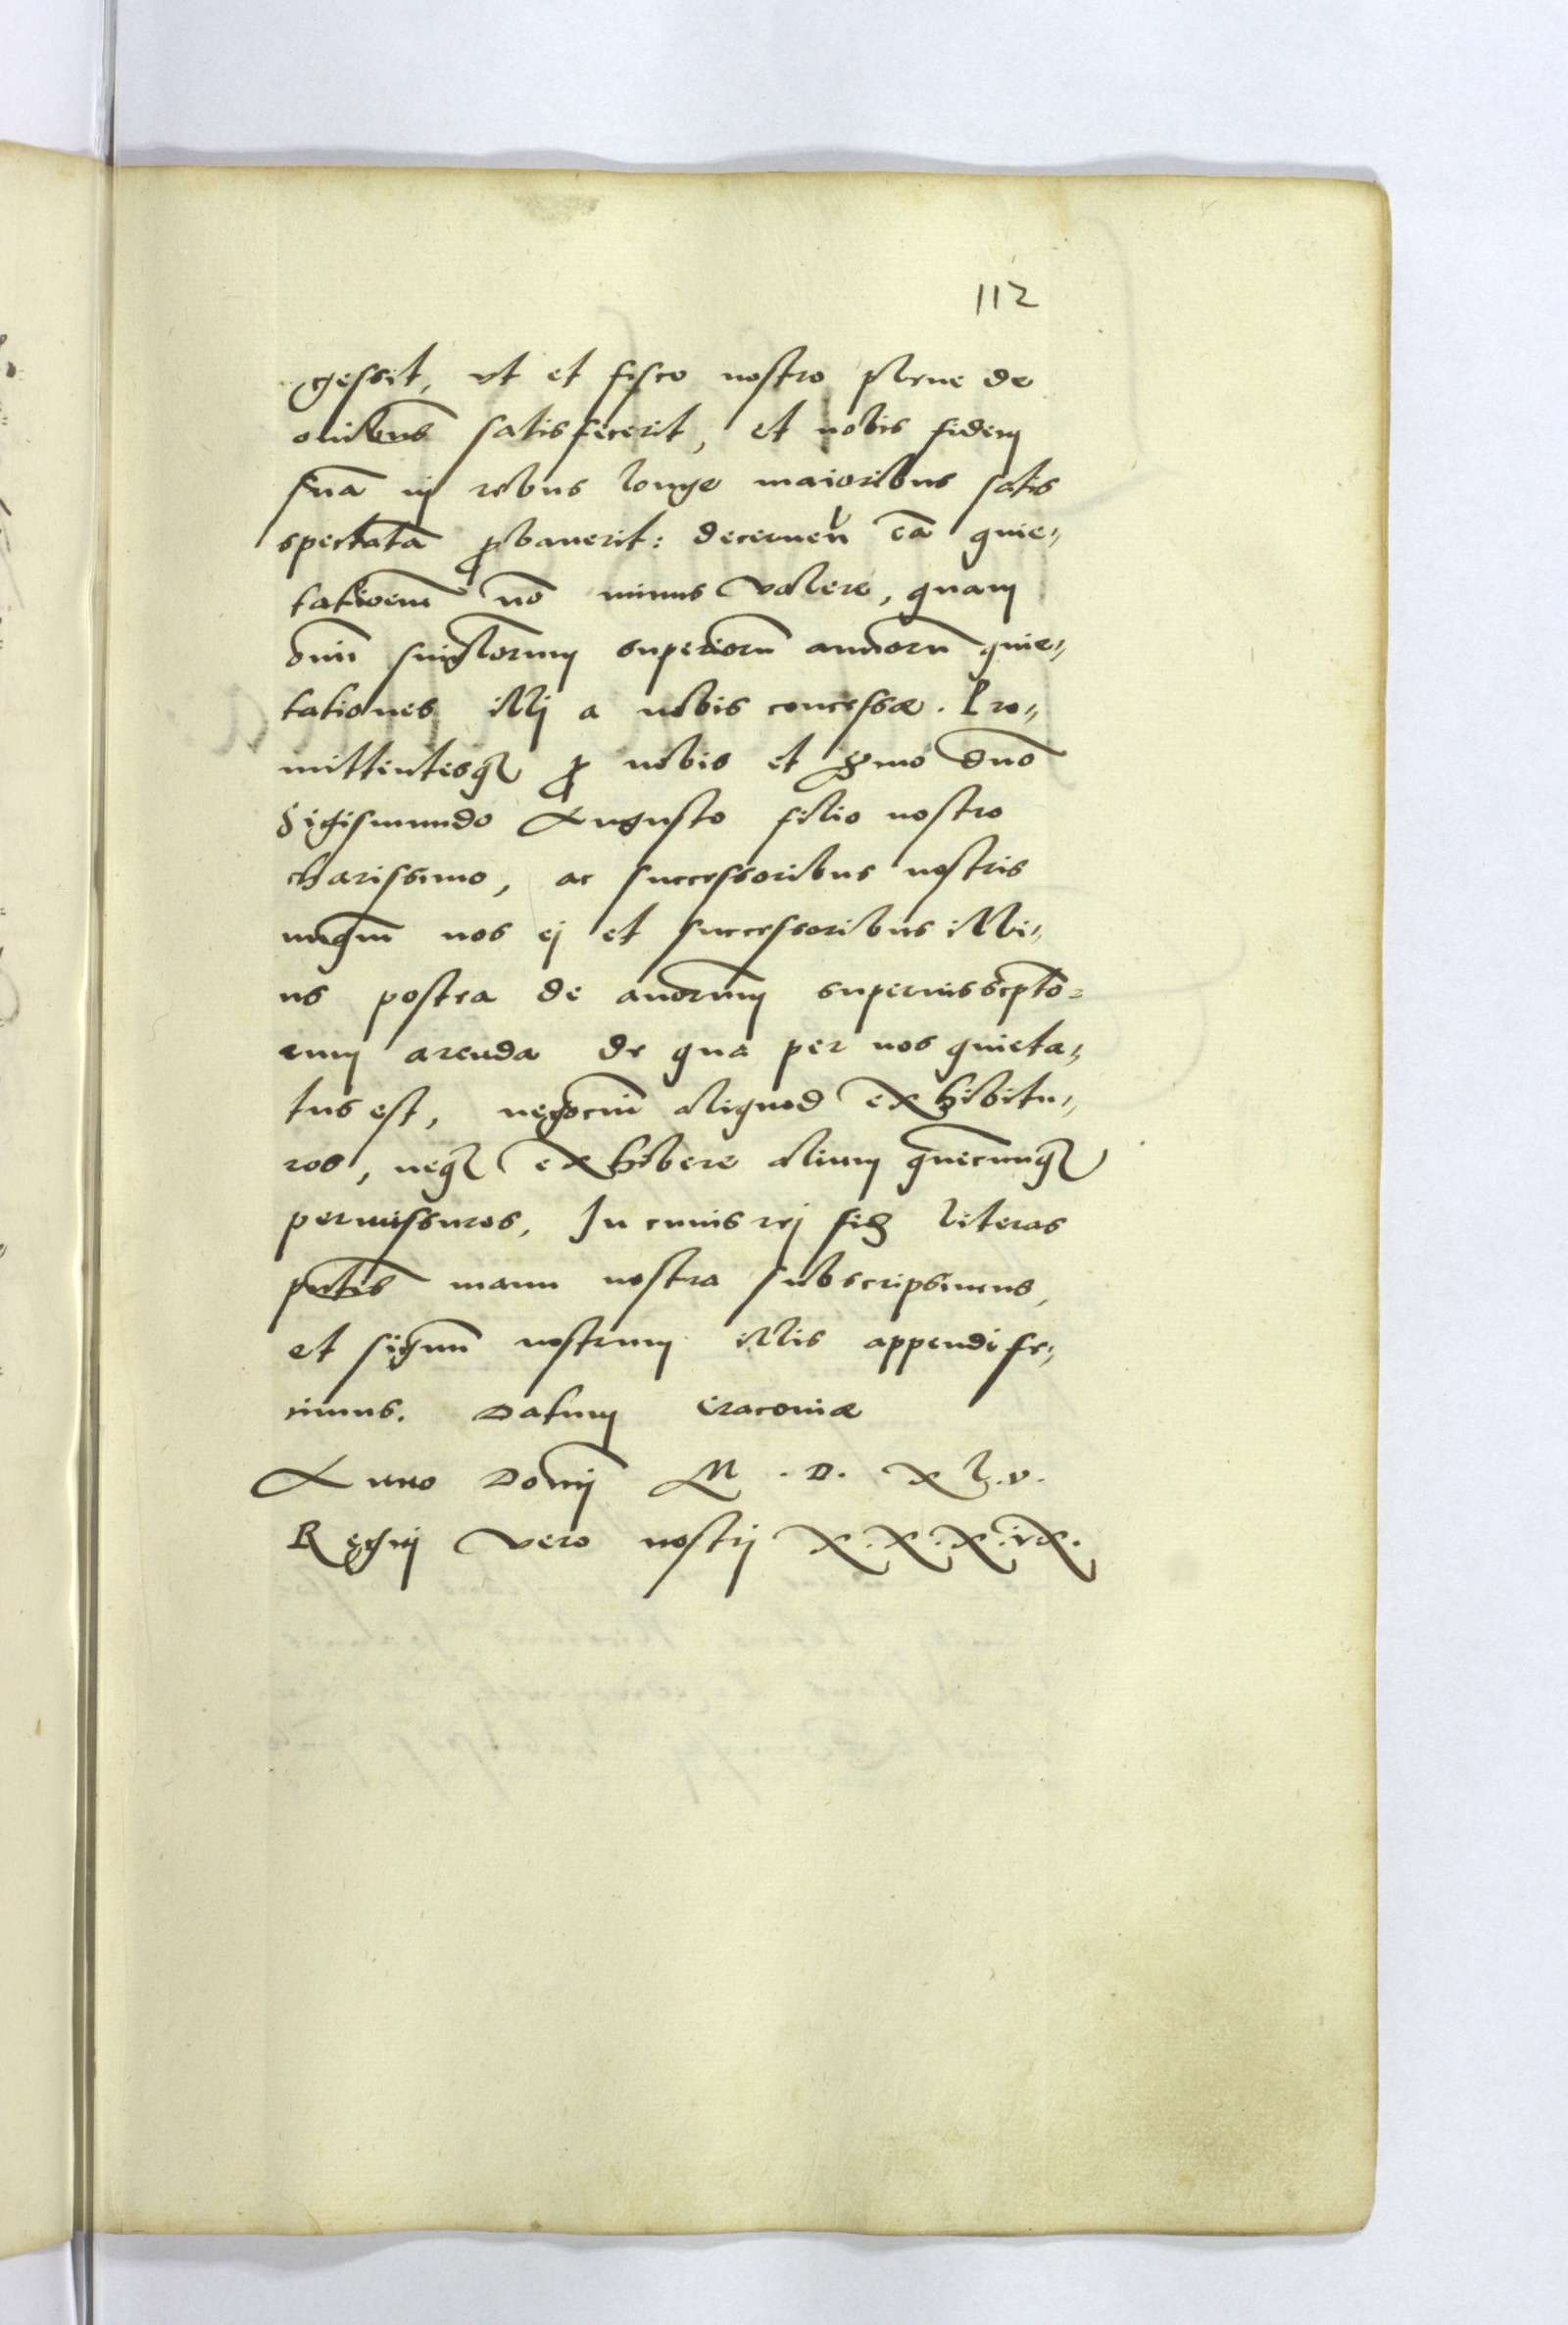 112
gessit, vt et fisco nostro plene de
oĩbus satisfecerit, et nobis fidem
suã in rebus longe maioribus satis
spectatã ꝓbauerit: decernen̄ eã quie„
tatioem̄ nõ minus valere, quam
om̄ singlorum superiorũ annorũ quie„
tationes illi a nobis concessæ. Pro„
mittentesq̃ ꝓ nobis et Sermo dño
Sigismundo Augusto filio nostro
charissimo, ac successoribus nostris
nunq̃m nos ei et successoribus illi„
us postea de annorum supernisscpto=
rum arenda de qua per nos quieta„
tus est, negociũ aliquod exhibitu„
ros, neq̃ exhibere alium quencunq̃
permissuros. In cuius rei fidē literas
pñtes manu nostra subscripsimus,
et sigim̄ nostrum illis appendi fe„
cimus. Datum Cracouiæ
Anno Domĩ M.D.XL.v.
Regni vero nostri X.X.X.ix.